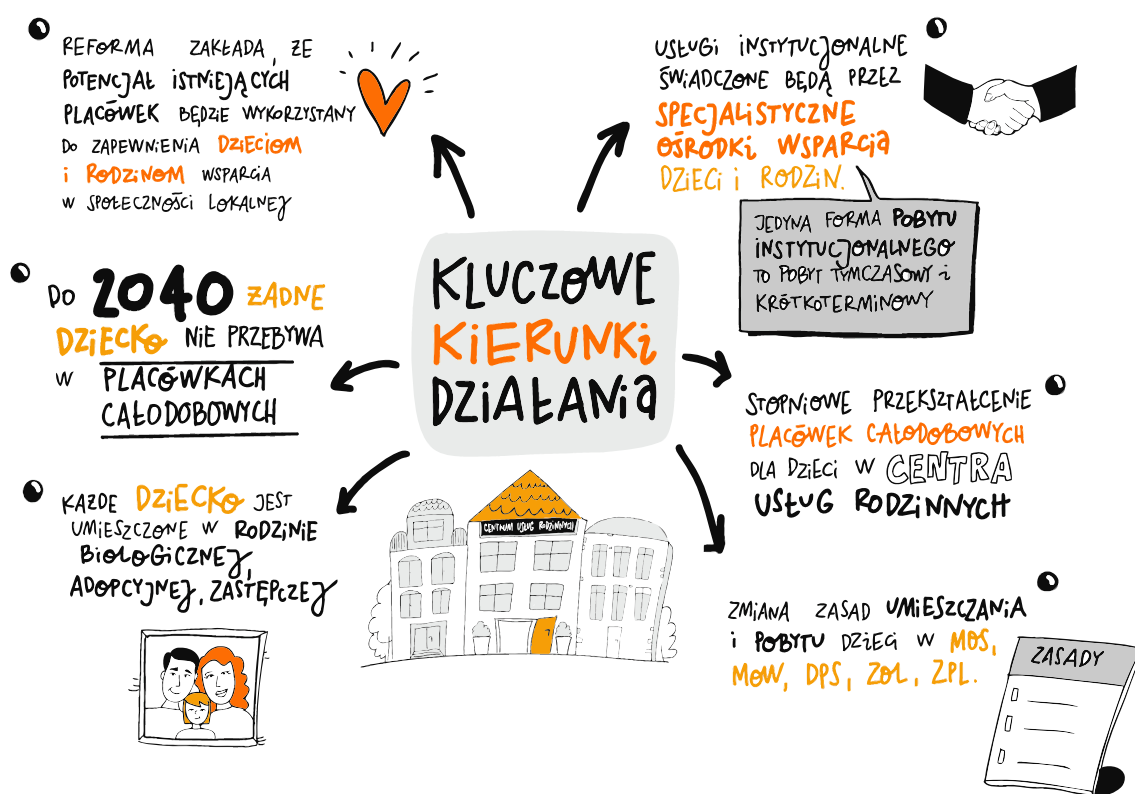 REFORMA ZAKŁADA, ŻE
POTENCJAŁ ISTNIEJĄCYCH
PLACÓWEK BĘDZIE WYKORZYSTANY
DO ZAPEWNIENIA DZIECIOM
i RODZINOM WSPARCIA
W SPOŁECZNOŚCI LOKALNEJ
USŁUGI INSTYTUCJONALNE
ŚWIADCZONE BĘDĄ PRZEZ
SPECJALISTYCZNE
OŚRODKI WSPARCIA
DZIECI i RODZIN.
JEDYNA FORMA POBYTU
INSTYTUCJONALNEGO
TO POBYT TYMCZASOWY i
KRÓTKOTERMINOWY
KLUCZOWE
KIERUNKI
DZIAŁANIA
DO 2040 ŻADNE
DZIECKO NIE PRZEBYWA
W PLACÓWKACH
CAŁODOBOWYCH
STOPNIOWE PRZEKSZTAŁCENIE
PLACÓWEK CAŁODOBOWYCH
DLA DZIECI W CENTRA
USŁUG RODZINNYCH
KAŻDE DZIECKO JEST
UMIESZCZONE W RODZINIE
BIOLOGICZNEJ,
ADOPCYJNEJ, ZASTĘPCZEJ
CENTRUM USŁUG RODZINNYCH
ZMIANA ZASAD UMIESZCZANIA
i POBYTU DZIECI W MOS,
MOW, DPS, ZOL, ZPL.
ZASADY